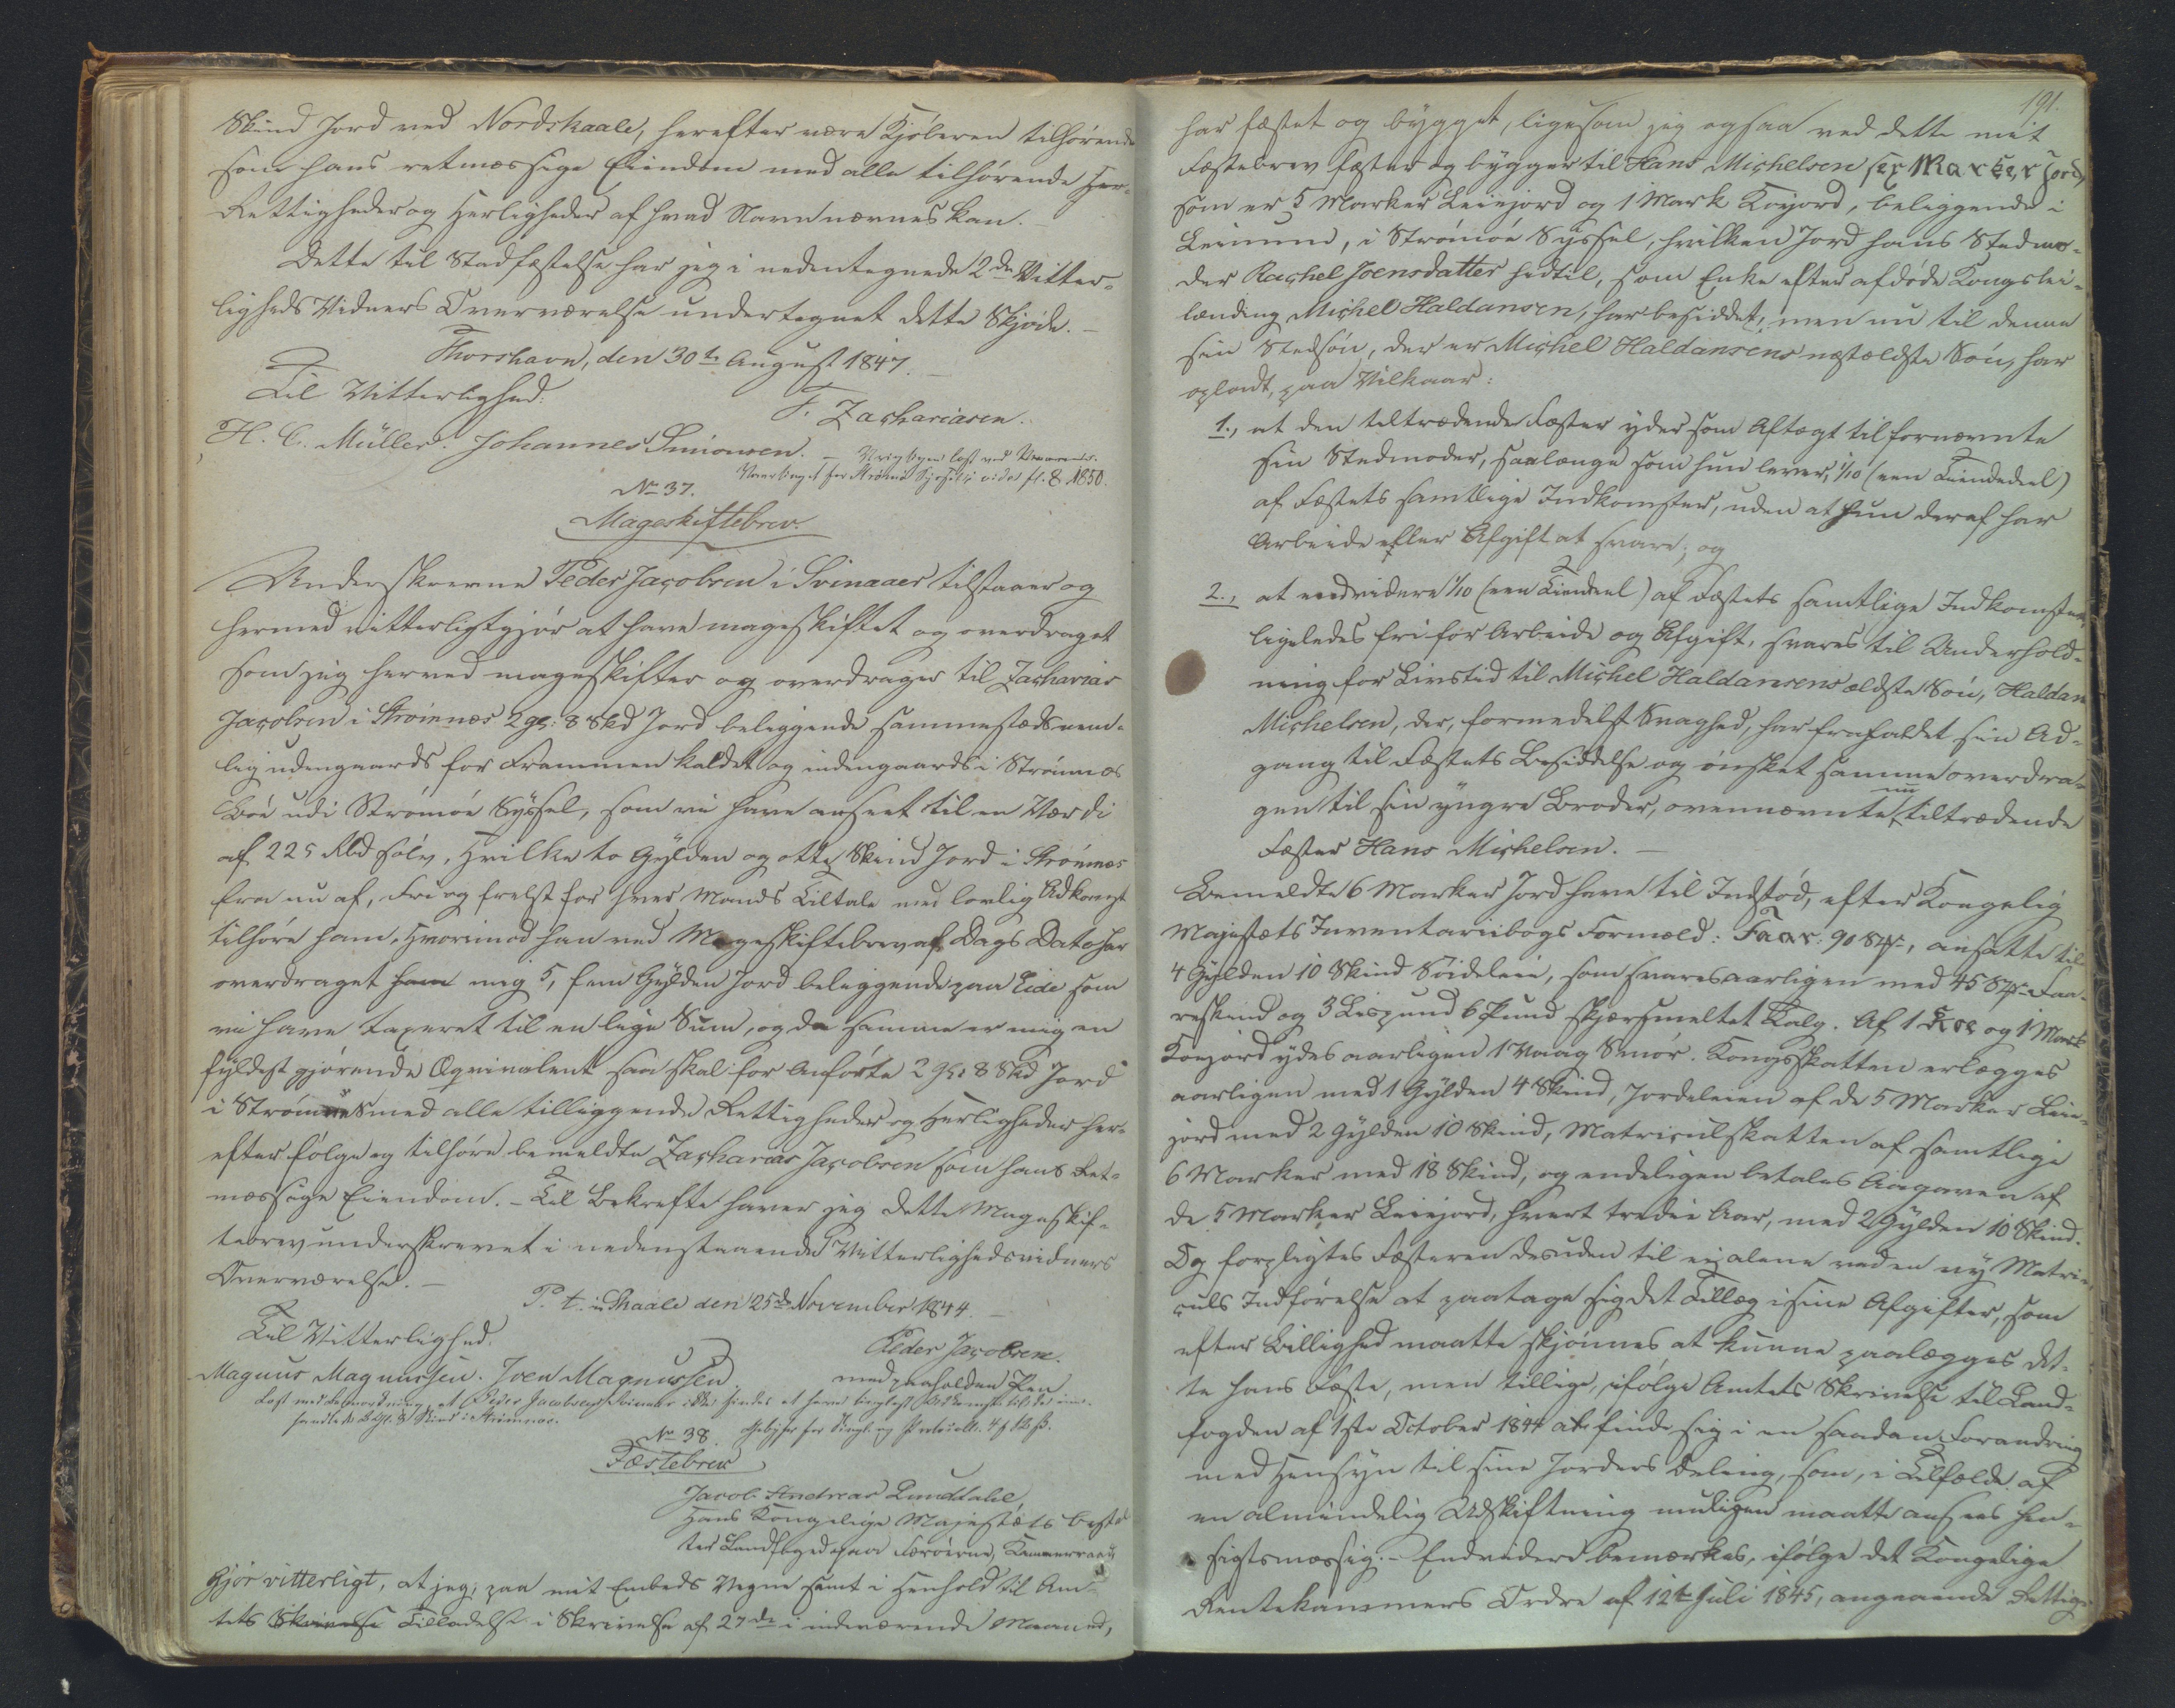 Skind Jord ved Nordskaale, herefter være Kjøberen tilhørende
som hans retmæssige Eiendom med alle tilhørende Her-
Rettigheder og Herligheder af hvad Navn nævnes kan. -
Dette til Stadfæstelse har jeg i nedentegnede 2de Vitter-
ligheds Vidners Overværelse undertegnet dette Skjøde. -
Thorshavn, den 30te August 1847. -
Til Vitterlighed:
F. Zachariasen.
H. C. Müller. Johannes Simonsen. - Ting lyst ved
Vaartinget for Strømø Syssel, vide fl. 8 1850.
No 37.
Mageskiftebrev.
Underskrevne Peder Jacobsen i Svinaaer tilstaaer og
hermed vitterligtgjør at have mageskiftet og overdraget
som jeg herved mageskifter og overdrager til Zacharias
Jacobsen i Strømnæs 2 gl: 8 Skd Jord beliggende sammestæds nem-
lig udengaards for Frammen kaldet og indengaards i Strømnæs
Bøe udi Strømøe Syssel, som vi have anseet til en Værdi
af 225 Rbd Sølv, Hvilke to Gylden og otte Skind Jord i Strømnæs
fra nu af, Fri og frelst for hver Mands Tiltale med lovlig Adkomst
tilhøre ham, Hvorimod han ved Mageskiftebrev af Dags Dato har
overdraget ham mig 5, fem Gylden Jord beliggende paa Eide som
vi have taxeret til en lige Sum, og da samme er mig en
fyldest gjørende Æqvivalent saa skal for anførte 2 Gl: 8 Skd Jord
i Strømnæs med alle tilliggende Rettigheder og Herligheder her-
efter følge og tilhøre bemeldte Zacharias Jacobsen som hans Ret-
mæssige Eiendom. - Til Bekræfte haver jeg dette Mageskif-
tebrev underskrevet i nedenstaaende Vitterlighedsvidners
Overværelse. -
P. t. i Skaale den 25de November 1844. -
Til Vitterlighed.
Peder Jacobsen.
Magnus Magnussen. Joen Magnussen.
med paaholden Pen
Læst med Bemærkning, at Peder Jacobsen Svinaaer ikke findes at have tinglyst Adkomst til de om-
handlede 2 Gl. 8 Skind i Strømnæs.
No 38.
Gebyhr for Tingl. og Protocoll. 4 ß.
Fæstebrev
Jacob Andreas Lundtahl,
Hans Kongelige Majestæts bestal-
ter Landfoged paa Færøerne, Kammerraad
Gjør vitterligt, at jeg, paa mit Embeds Vegne samt i Henhold til Am-
tets Skrivelse Tilladelse i Skrivelse af 27de i indeværende Maaned,
191.
har fæstet og bygget, ligesom jeg ogsaa ved dette mit
Fæstebrev fæster og bygger til Hans Michelsen sex Marker Jord,
som er 5 Marker Leiejord og 1 Mark Kojord, beliggende i
Leinum, i Strømøe Syssel, hvilken Jord hans Stedmo-
der Rachel Joensdatter hidtil, som Enke efter afdøde Kongslei-
lænding Michel Haldansen, har besiddet, men nu til denne
sin Stedsøn, der er Michel Haldansens næstældste Søn, har
opladt, paa Vilkaar:
1., at den tiltrædende Fæster yder som Aftægt til fornævnte
sin Stedmoder, saalænge som hun lever, 1/10 (een Tiendedeel)
af Fæstets samtlige Indkomster, uden at hun deraf har
Arbeide eller Afgift at svare; og
2., at endvidere 1/10 (een Tiendeel) af Fæstets samtlige Indkomster,
ligeledes fri for Arbeide og Afgift, svares til Underhold-
ning for Livstid til Michel Haldansens ældste Søn, Haldan
Michelsen, der, formedelst Svaghed, har frafaldet sin Ad-
gang til Fæstets Besiddelse og ønsket samme overdra-
gen til sin yngre Broder, ovennævnte nu tiltrædende
Fæster Hans Michelsen. -
Bemeldte 6 Marker Jord have til Indstød, efter Kongelig
Majestæts Inventariibogs Formæld: Faar: 90 Stk., ansatte til
4 Gylden 10 Skind Søideleie, som svares aarligen med 45 Stk. Faa-
reskind og 3 Lispund 6 Pund skjærsmeltet Talg. Af 1 Koe og 1 Mark
Kojord ydes aarligen 1 Vaag Smør. Kongsskatten erlægges
aarligen med 1 Gylden 4 Skind, Jordeleien af de 5 Marker Leie-
jord med 2 Gylden 10 Skind, Matriculskatten af samtlige
6 Marker med 18 Skind, og endeligen betales Aagaven af
de 5 Marker Leiejord, hvert tredie Aar, med 2 Gylden 10 Skind.
Og forpligtes Fæsteren desuden til ei alene ved en ny Matri-
culs Indførelse at paatage sig det Tillæg i sine Afgifter, som
efter Billighed maatte skjønnes at kunne paalægges det-
te hans Fæste, men tillige, ifølge Amtets Skrivelse til Land-
fogden af 1ste October 1844 at finde sig i en saadan Forandring
med Hensyn til sine Jorders Deling, som, i Tilfælde af
en almindelig Udskiftning muligen maatte ansees hen-
sigtsmæssig. - Endvidere bemærkes, ifølge det Kongelige
Rentekammers Ordre af 12te Juli 1845, angaaende Rettig-